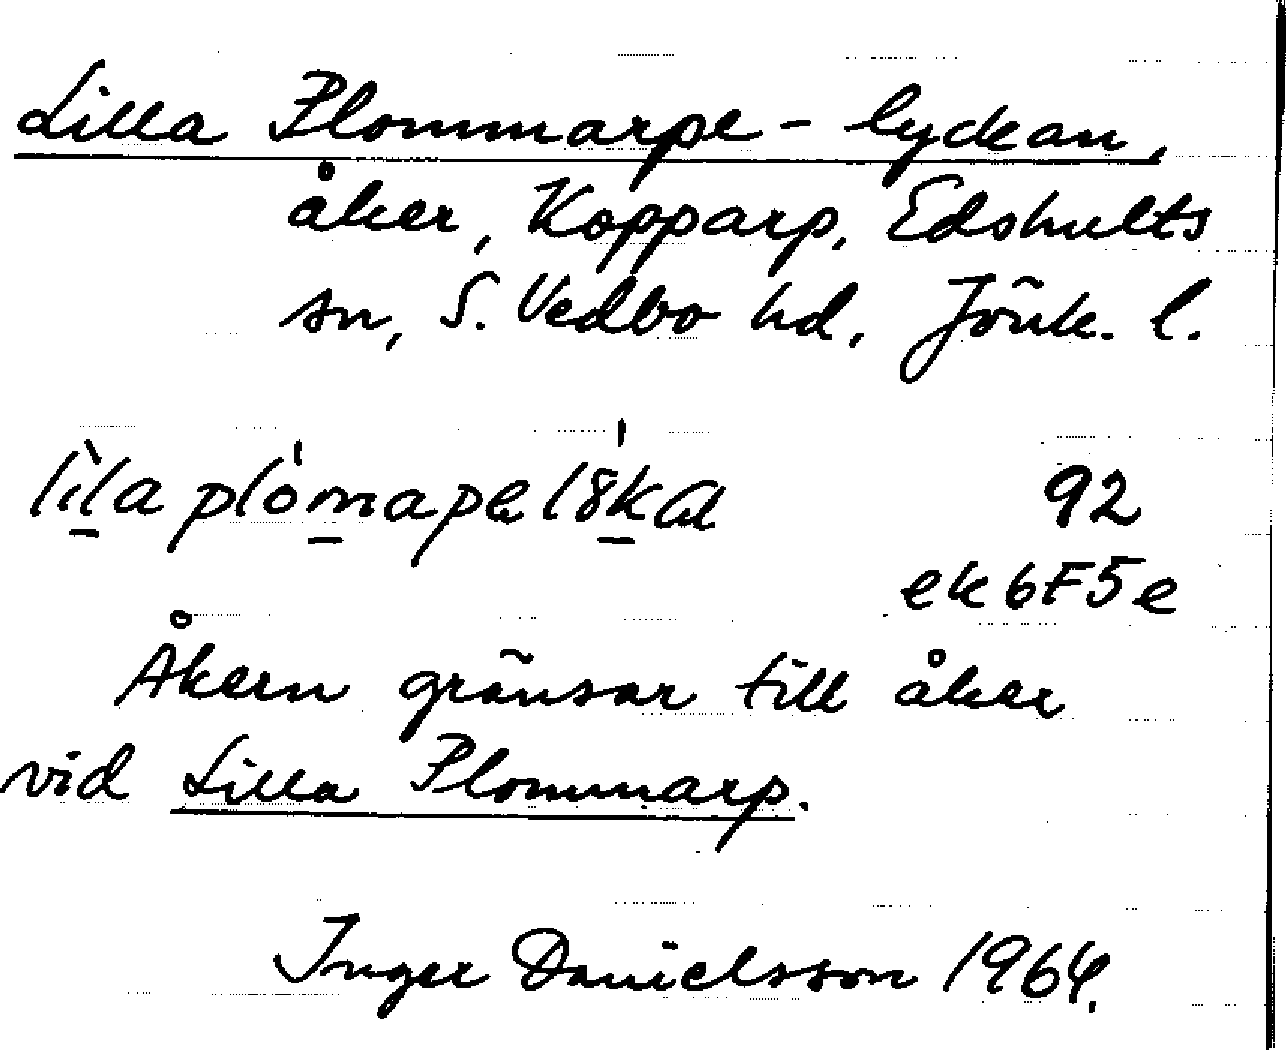 Lilla Plommarpe-lyckan,
åker, Kopparp, Edshults
sn, S. Vedbo hd, Jönk. l.
92
ek 6F5e
Åkern gränsar till åker
vid Lilla Plommarp.
Inger Danielsson 1964.